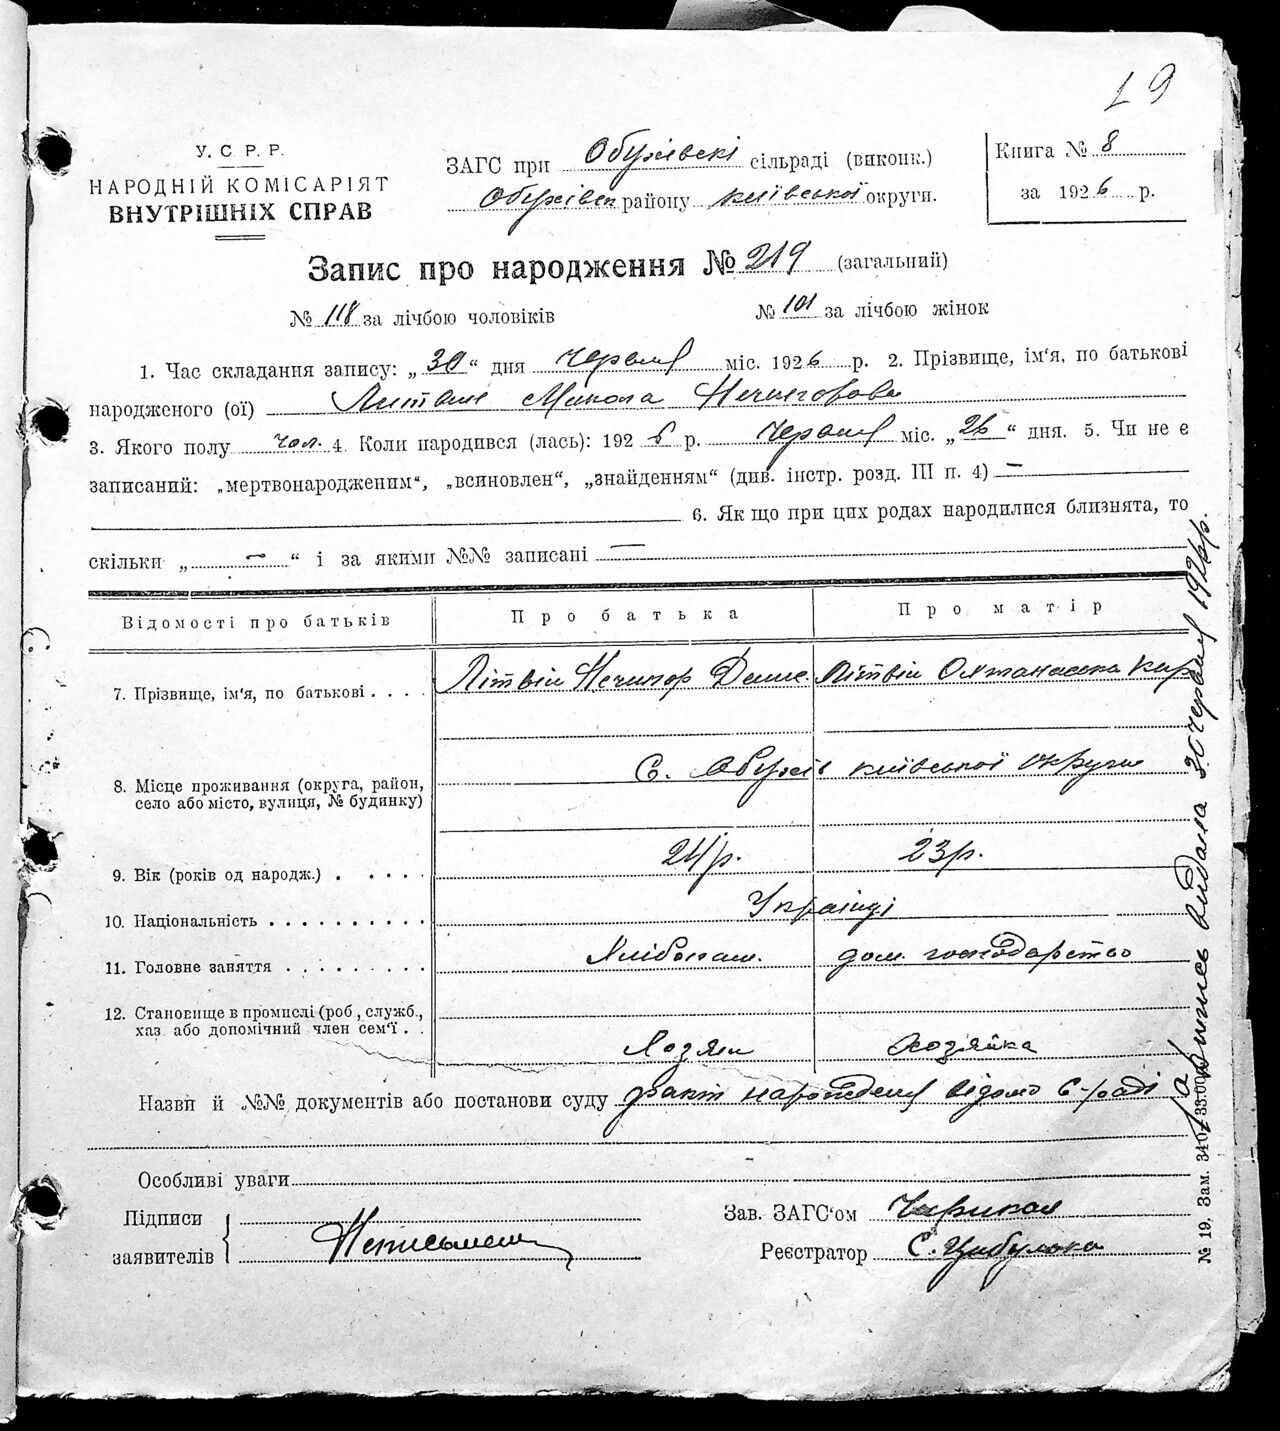 19
У. С. Р. Р.
НАРОДНІЙ КОМІСАРІЯТ
ВНУТРІШНІХ СПРАВ
ЗАГС при Обухівскі сільраді (виконк.)
Обухівск району київської округи.
Книга № 8
за 1926 р.
Запис про народження № 219 (загальний)
№ 118 за лічбою чоловіків
№ 101 за лічбою жінок
1. Час складання запису: „30“ дня Червня міс. 1926 р. 2. Прізвище, ім‘я, по батькові
народженого (ої) Литвин Микола Нечипорови
3. Якого полу чол. 4. Коли народився (лась): 1926 р. Червня міс. „26“ дня. 5. Чи не є
записаний: „мертвонародженим“, „всиновлен“, „знайденням“ (див. інстр. розд. III п. 4) —
6. Як що при цих родах народилися близнята, то
скільки „ — “ і за якими №№ записані —
Відомості про батьків
Про батька
Про матір
7. Прізвище, ім‘я, по батькові . . . .
Літвін Нечипор Денис
Літвін Охтанаска Кир
8. Місце проживання (округа, район,
село або місто, вулиця, № будинку)
С. Обухів київської округи
9. Вік (років од народж.) . . . . .
24р.
23р.
10. Національність . . . . . . . . . .
Українці
11. Головне заняття . . . . . . . . .
Хлібопаш.
дом. господарство
12. Становище в промислі (роб., служб.,
хаз. або допомічний член сем‘ї . .
Хозяин
Хозяйка
Назви й №№ документів або постанови суду факт народження відомо С-раді
Особливі уваги
Підписи
заявителів
Неписьмен
Зав. ЗАГС‘ом
Реєстратор С. Цибулька
№ 19. Зам. 3407-33.000
випись видана 30 червня 1926р.